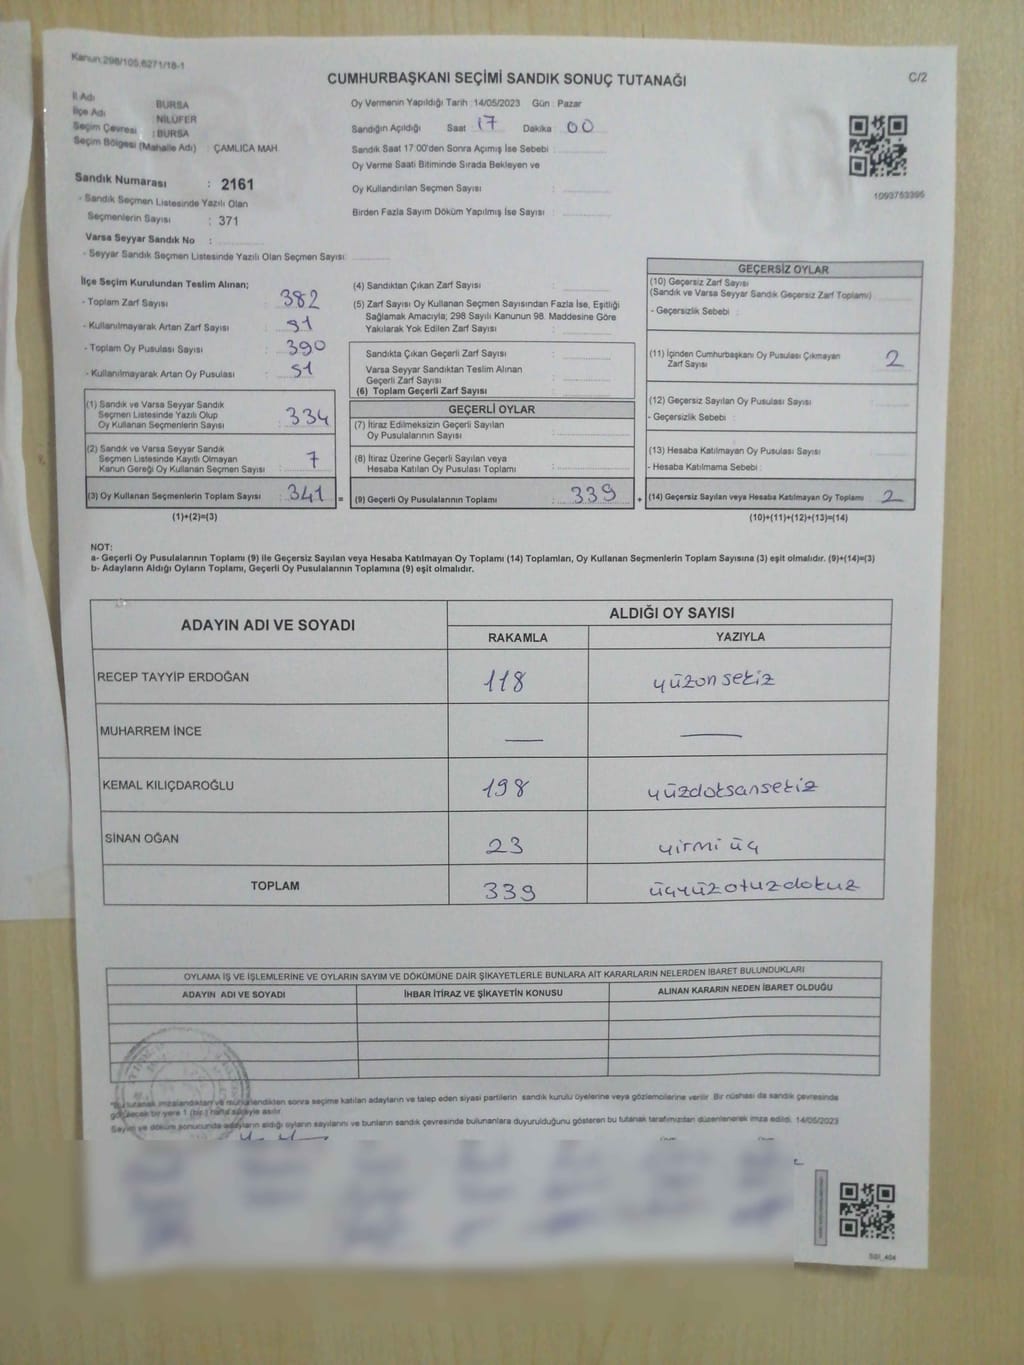 Kanun:298/105,6271/18-1
CUMHURBAŞKANI SEÇİMİ SANDIK SONUÇ TUTANAĞI
C/2
İl Adı : BURSA
İlçe Adı : NİLÜFER
Seçim Çevresi : BURSA
Seçim Bölgesi (Mahalle Adı) : ÇAMLICA MAH.
Sandık Numarası : 2161
- Sandık Seçmen Listesinde Yazılı Olan
Seçmenlerin Sayısı : 371
Varsa Seyyar Sandık No :
- Seyyar Sandık Seçmen Listesinde Yazılı Olan Seçmen Sayısı:
Oy Vermenin Yapıldığı Tarih :14/05/2023 Gün : Pazar
Sandığın Açıldığı Saat 17 Dakika 00
Sandık Saat 17:00'den Sonra Açımış İse Sebebi :
Oy Verme Saati Bitiminde Sırada Bekleyen ve
Oy Kullandırılan Seçmen Sayısı :
Birden Fazla Sayım Döküm Yapılmış İse Sayısı :
1093753395
İlçe Seçim Kurulundan Teslim Alınan;
- Toplam Zarf Sayısı : 382
- Kullanılmayarak Artan Zarf Sayısı : 91
- Toplam Oy Pusulası Sayısı : 390
- Kullanılmayarak Artan Oy Pusulası : 51
(1) Sandık ve Varsa Seyyar Sandık
Seçmen Listesinde Yazılı Olup
Oy Kullanan Seçmenlerin Sayısı : 334
(2) Sandık ve Varsa Seyyar Sandık
Seçmen Listesinde Kayıtlı Olmayan
Kanun Gereği Oy Kullanan Seçmen Sayısı : 7
(3) Oy Kullanan Seçmenlerin Toplam Sayısı : 341 =
(1)+(2)=(3)
(4) Sandıktan Çıkan Zarf Sayısı :
(5) Zarf Sayısı Oy Kullanan Seçmen Sayısından Fazla İse, Eşitliği
Sağlamak Amacıyla; 298 Sayılı Kanunun 98. Maddesine Göre
Yakılarak Yok Edilen Zarf Sayısı :
Sandıkta Çıkan Geçerli Zarf Sayısı :
Varsa Seyyar Sandıktan Teslim Alınan
Geçerli Zarf Sayısı :
(6) Toplam Geçerli Zarf Sayısı :
GEÇERLİ OYLAR
(7) İtiraz Edilmeksizin Geçerli Sayılan
Oy Pusulalarının Sayısı :
(8) İtiraz Üzerine Geçerli Sayılan veya
Hesaba Katılan Oy Pusulası Toplamı :
(9) Geçerli Oy Pusulalarının Toplamı : 339 +
GEÇERSİZ OYLAR
(10) Geçersiz Zarf Sayısı
(Sandık ve Varsa Seyyar Sandık Geçersiz Zarf Toplamı) :
- Geçersizlik Sebebi :
(11) İçinden Cumhurbaşkanı Oy Pusulası Çıkmayan
Zarf Sayısı : 2
(12) Geçersiz Sayılan Oy Pusulası Sayısı :
- Geçersizlik Sebebi :
(13) Hesaba Katılmayan Oy Pusulası Sayısı :
- Hesaba Katılmama Sebebi :
(14) Geçersiz Sayılan veya Hesaba Katılmayan Oy Toplamı : 2
(10)+(11)+(12)+(13)=(14)
NOT:
a- Geçerli Oy Pusulalarının Toplamı (9) ile Geçersiz Sayılan veya Hesaba Katılmayan Oy Toplamı (14) Toplamları, Oy Kullanan Seçmenlerin Toplam Sayısına (3) eşit olmalıdır. (9)+(14)=(3)
b- Adayların Aldığı Oyların Toplamı, Geçerli Oy Pusulalarının Toplamına (9) eşit olmalıdır.
ADAYIN ADI VE SOYADI
ALDIĞI OY SAYISI
RAKAMLA YAZIYLA
RECEP TAYYİP ERDOĞAN 118 yüzonsekiz
MUHARREM İNCE — —
KEMAL KILIÇDAROĞLU 198 yüzdoksansekiz
SİNAN OĞAN 23 yirmi üç
TOPLAM 339 üçyüzotuzdokuz
OYLAMA İŞ VE İŞLEMLERİNE VE OYLARIN SAYIM VE DÖKÜMÜNE DAİR ŞİKAYETLERLE BUNLARA AİT KARARLARIN NELERDEN İBARET BULUNDUKLARI
ADAYIN ADI VE SOYADI İHBAR İTİRAZ VE ŞİKAYETİN KONUSU ALINAN KARARIN NEDEN İBARET OLDUĞU
*Bu tutanak imzalandıktan ve mühürlendikten sonra seçime katılan adayların ve talep eden siyasi partilerin sandık kurulu üyelerine veya gözlemcilerine verilir. Bir nüshası da sandık çevresinde
görülecek bir yere 1 (bir) hafta süreyle asılır.
Sayım ve döküm sonucunda adayların aldığı oyların sayılarını ve bunların sandık çevresinde bulunanlara duyurulduğunu gösteren bu tutanak tarafımızdan düzenlenerek imza edildi. 14/05/2023